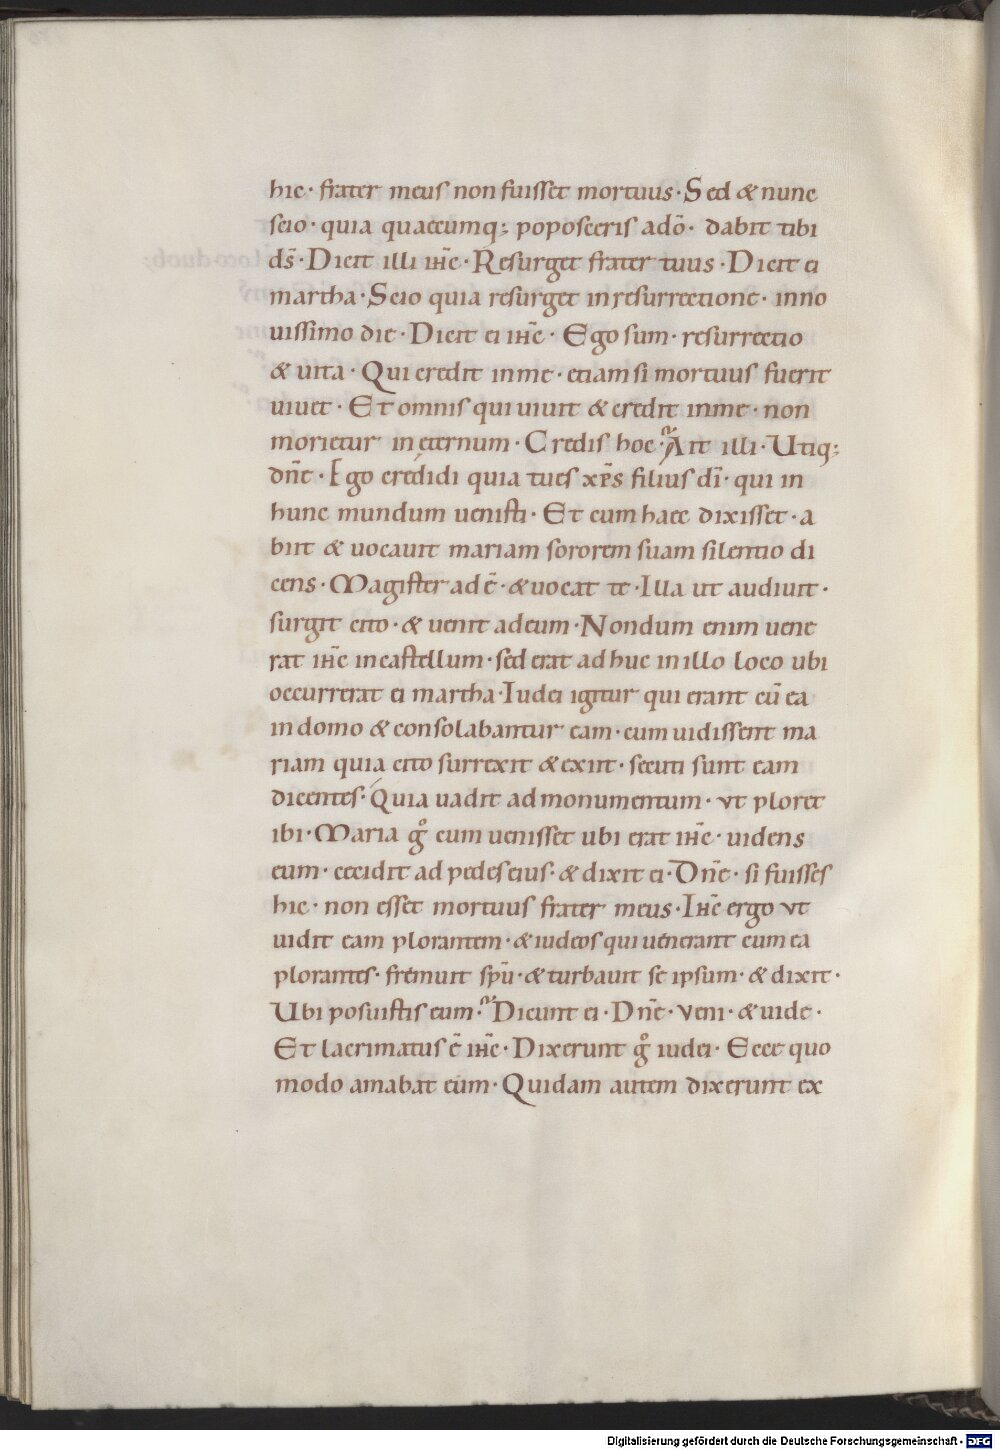 hic · frater meus non fuisset mortuus · Sed & nunc
scio · quia quaecumq; poposceris adō · dabit tibi
ds̄ · Dicit illi ihc̄ · Resurget frater tuus · Dicit ei
martha · Scio quia resurget in resurrectione · in no
uissimo die · Dicit ei ihc̄ · Ego sum · resurrectio
& uita · Qui credit in me · etiam si mortuus fuerit
uiuet · Et omnis qui uiuit & credit in me · non
morietur in eternum · Credis hoc · Ait illi · Utiq;
dn̄e · Ego credidi quia tu es xp̄s filius dī · qui in
hunc mundum uenisti · Et cum haec dixisset · a
biit & uocauit mariam sororem suam silentio di
cens · Magister ad ē · & uocat te · Illa ut audiuit ·
surgit cito · & uenit ad eum · Nondum enim uene
rat ihc̄ in castellum · sed erat ad huc in illo loco ubi
occurrerat ei martha · Iudei igitur qui erant cū ea
in domo & consolabantur eam · cum uidissent ma
riam quia cito surrexit & exiit · secuti sunt eam
dicentes · Quia uadit ad monumentum · vt ploret
ibi · Maria gͦ cum uenisset ubi erat ihc̄ · uidens
eum · cecidit ad pedes eius · & dixit ei · Dn̄e · si fuisses
hic · non esset mortuus frater meus · Ihc̄ ergo vt
uidit eam plorantem · & iudeos qui uenerant cum ea
plorantes · fremuit spū · & turbauit se ipsum · & dixit ·
Ubi posuistis eum · Dicunt ei · Dn̄e · veni · & uide ·
Et lacrimatus ē ihc̄ · Dixerunt gͦ iudei · Ecce quo
modo amabat eum · Quidam autem dixerunt ex
Digitalisierung gefördert durch die Deutsche Forschungsgemeinschaft - DFG